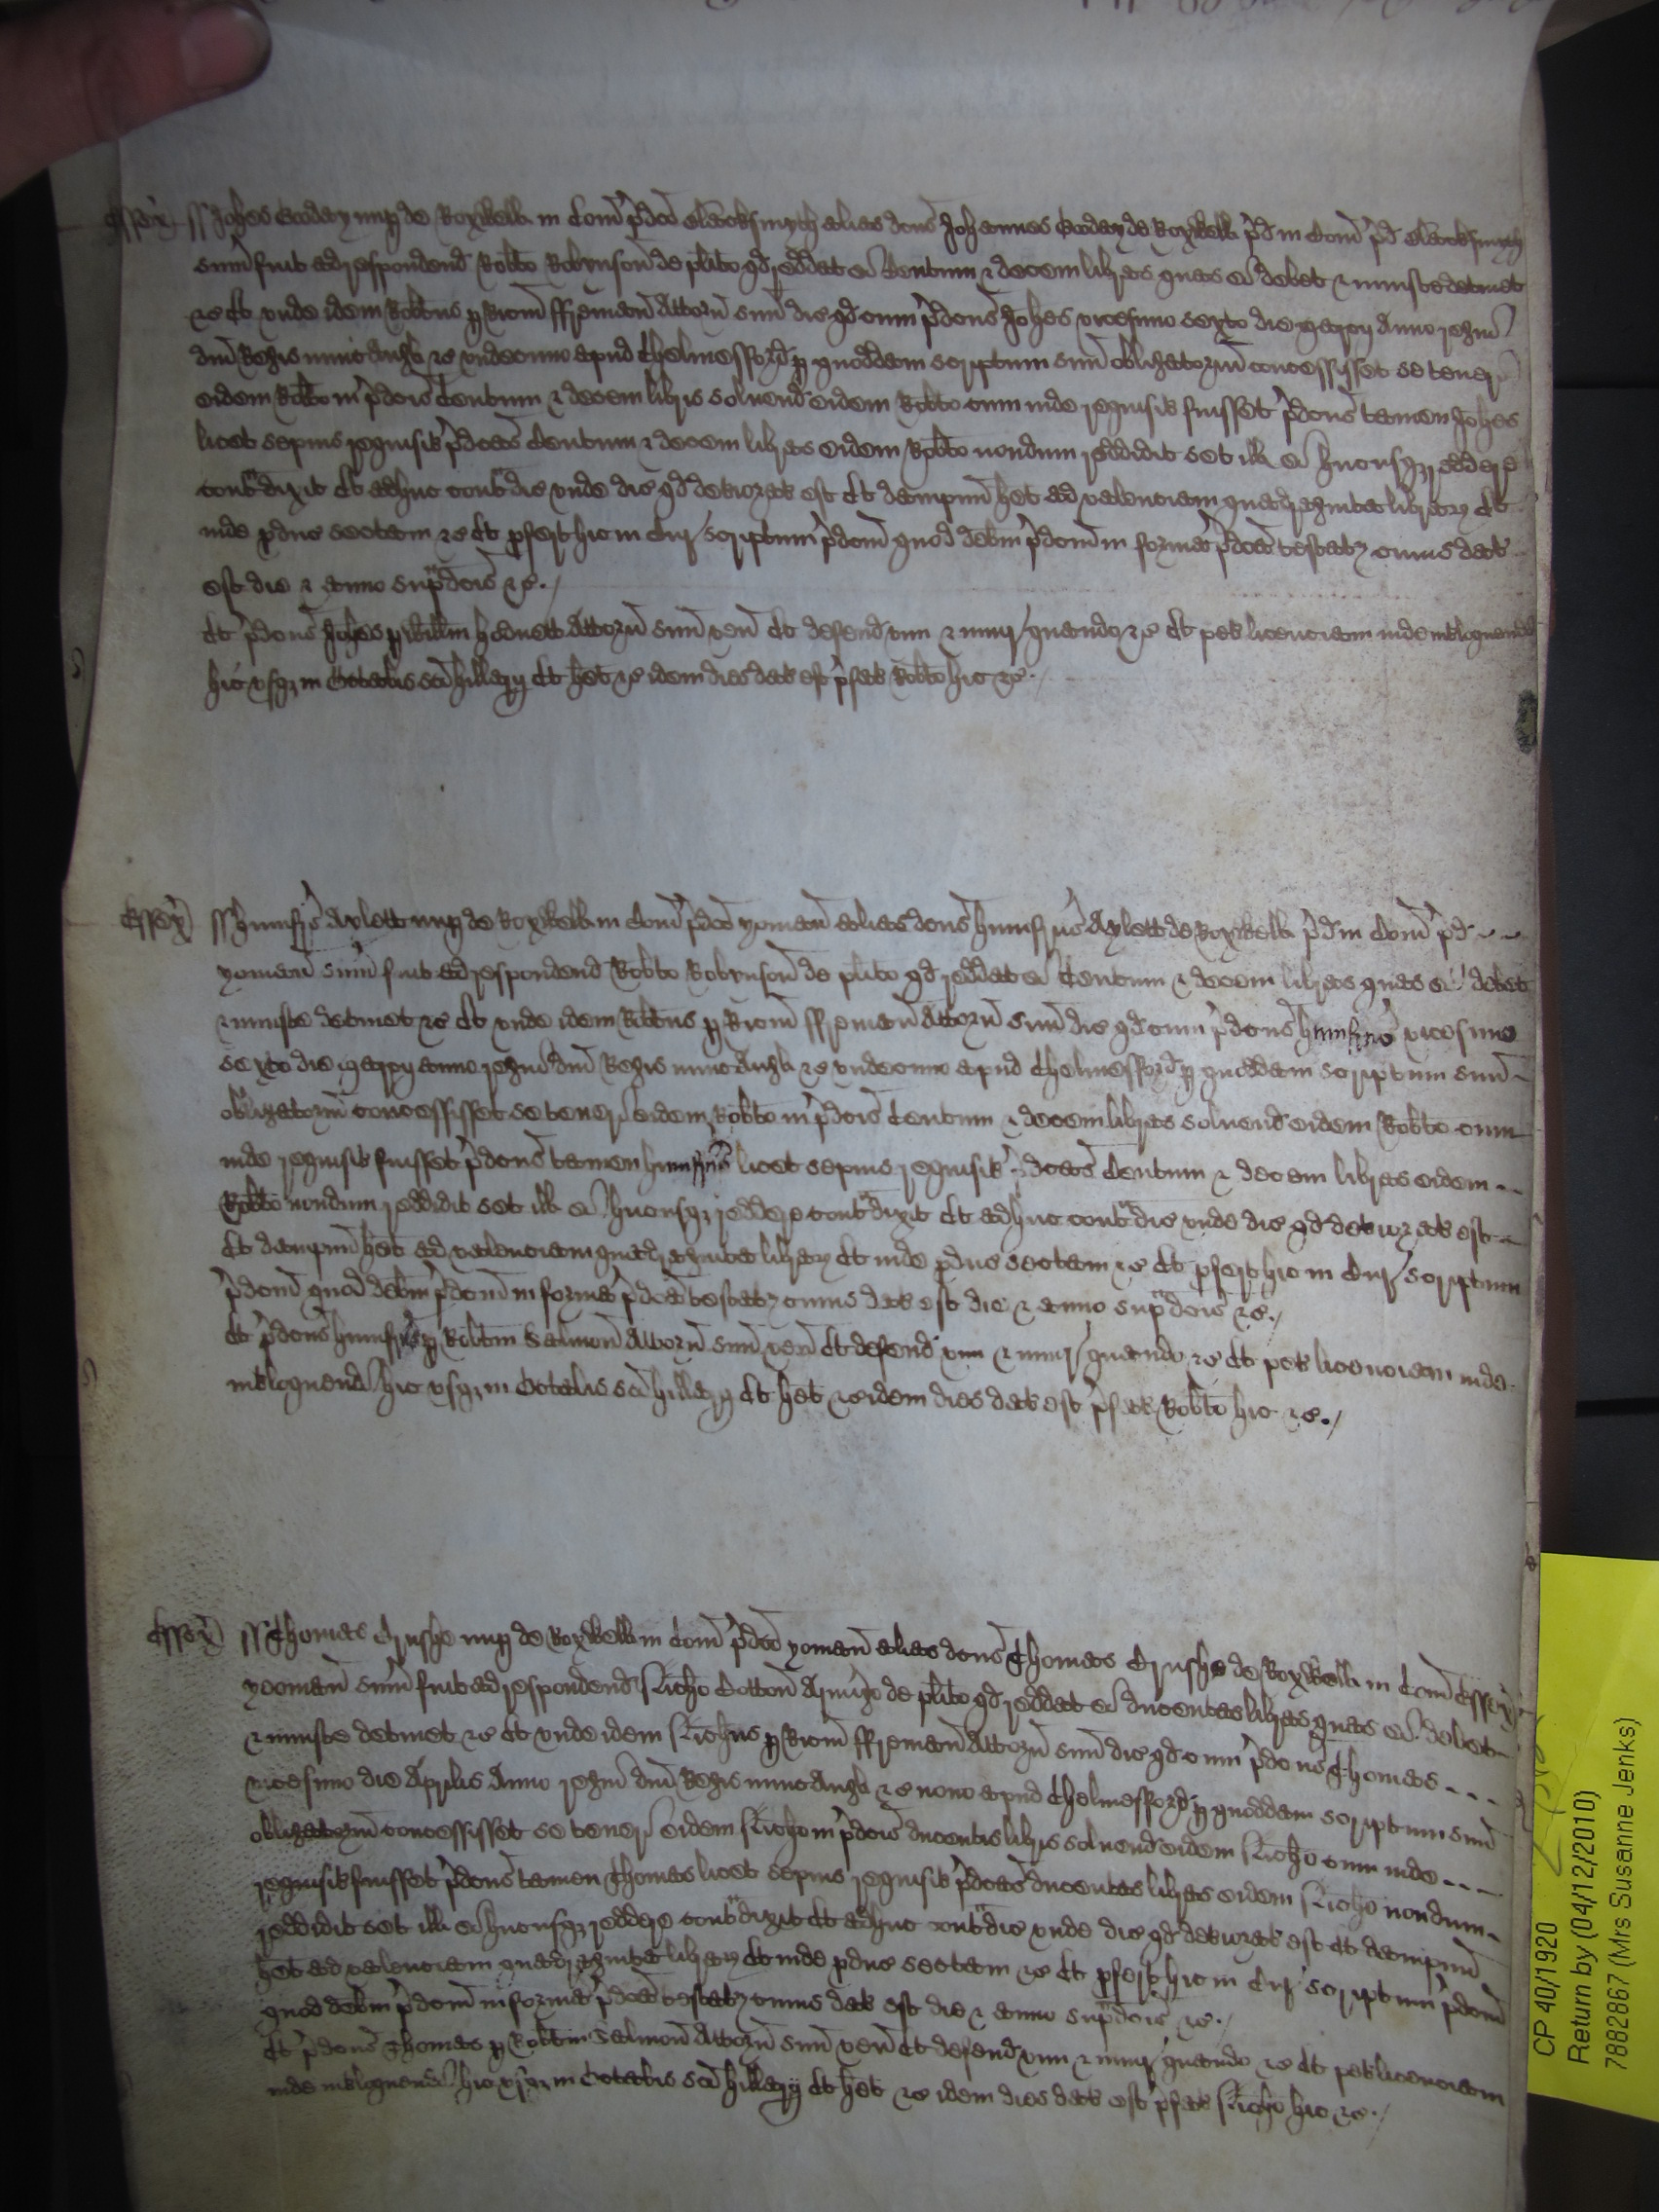 Essex ss Johes Gooday nup de Roxwell in Com p̄dco Blacksmyth alias dcus Johannes Gooday de Roxwell p̄d in Com p̄d Blacksmyth
sum fuit ad respondend Robto Robynson de plito qd reddat ei Centum & decem libras quas ei debet & iniuste detinet
&c Et unde idem Robtus p Ricm ffreman Attorn suu dic qd cum p̄dcus Johes vicesimo sexto die Marcij Anno regni
dni Regis nunc Angl &c undecimo apud Chelmesford p quoddam scriptum suu obligatoriu concessisset se teneri
eidem Robto in p̄dcis Centum & decem libris solvend eidem Robto cum inde requisit fuisset p̄dcus tamen Johes
licet sepius requisit p̄dcas Centum & decem libras eidem Robto nondum reddidit set ill ei hucusq reddere
contradixit Et adhuc contradic unde dic qd deteriorat est Et dampnu het ad valenciam quadraginta librar Et
inde pduc sectam &c Et pfert hic in Cur scriptum p̄dcm quod debm p̄dcm in forma p̄dca testatr cuius dat
est die & anno supradcis &c.
Et p̄dcus Johes p Willm Attorn suu ven Et defend vim & iniur quando &c Et pet licenciam inde intloquend
hic usq in Octabis sci Hillarij Et het &c idem dies dat est p̄fat Robto hic &c.
Essex ss Humfrus Aylett nup de Roxwell in Com p̄dco yoman alias dcus Humfrus Aylett de Roxwell p̄d in Com p̄d
yoman sum fuit ad respondend Robto Robynson de plito qd reddat ei Centum & decem libras quas ei debet
& iniuste detinet &c Et unde idem Robtus p Ricm ffreman Attorn suu dic qd cum p̄dcus Humfrus vicesimo
sexto die Marcij anno regni dni Regis nunc Angl &c undecimo apud Chelmesford p quoddam scriptum suu
obligatoriu concessisset se teneri eidem Robto in p̄dcis Centum & decem libras solvend eidem Robto cum
inde requisit fuisset p̄dcus tamen Humfrus licet sepius requisit p̄dcas Centum & decem libras eidem
Robto nondum reddidit set ill ei hucusq reddere contradixit Et adhuc contradic unde dic qd deteriorat est
Et dampnu het ad valenciam quadraginta librar Et inde pduc sectam &c Et pfert hic in Cur scriptum
p̄dcm quod debm p̄dcm in forma p̄dca testatr cuius dat est die & anno supradcis &c.
Et p̄dcus Humfrus p Robtm Salmon Attorn suu ven Et defend vim & iniur quando &c Et pet licenciam inde
intloquend hic usq in Octabis sci Hillarij Et het &c idem dies dat est p̄fat Robto hic &c.
Essex ss Thomas Crushe nup de Roxwell in Com p̄dco yoman alias dcus Thomas Crushe de Roxwell in Com Essex
yooman sum fuit ad respondend Richo Cotton Armigo de plito qd reddat ei ducentas libras quas ei debet
& iniuste detinet &c Et unde idem Richus p Ricm ffreman Attorn suu dic qd cum p̄dcus Thomas
vicesimo die Aprilis Anno regni dni Regis nunc Angl &c nono apud Chelmesford p quoddam scriptum suu
obligatoriu concessisset se teneri eidem Richo in p̄dcis ducentis libris solvend eidem Richo cum inde
requisit fuisset p̄dcus tamen Thomas licet sepius requisit p̄dcas ducentas libras eidem Richo nondum
reddidit set ill ei hucusq reddere contradixit Et adhuc contradic unde dic qd deteriorat est Et dampnu
het ad valenciam quadraginta librar Et inde pduc sectam &c Et pfert hic in Cur scriptum p̄dcm
quod debm p̄dcm in forma p̄dca testatr cuius dat est die & anno supradcis &c.
Et p̄dcus Thomas p Robtm Salmon Attorn suu ven Et defend vim & iniur quando &c Et pet licenciam
inde intloquend hic usq in Octabis sci Hillarij Et het &c idem dies dat est p̄fat Richo hic &c.
CP 40/1920
Return by (04/12/2010)
7882867 (Mrs Susanne Jenks)